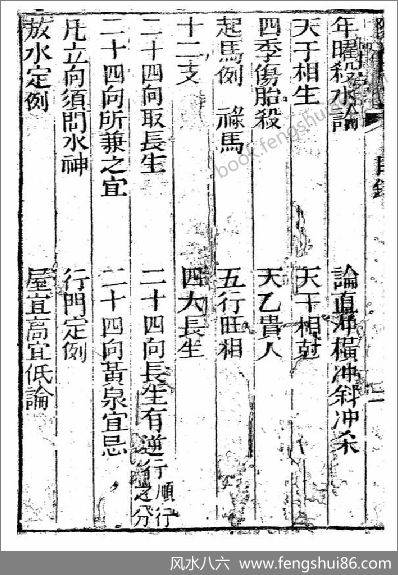 年曜殺水論　論直冲橫冲斜冲朱
天干相生　天干相尅
四季傷胎殺　天乙貴人
起馬例　祿馬　五行旺相
十二支　四大長生
二十四向取長生　二十四向長生有逆行順行之分
二十四向所兼之宜　二十四向黃泉宜忌
凡立向須問水神　行門定例
放水定例　屋宜高宜低論
book.fengshui86.com
风水八六 www.fengshui86.com